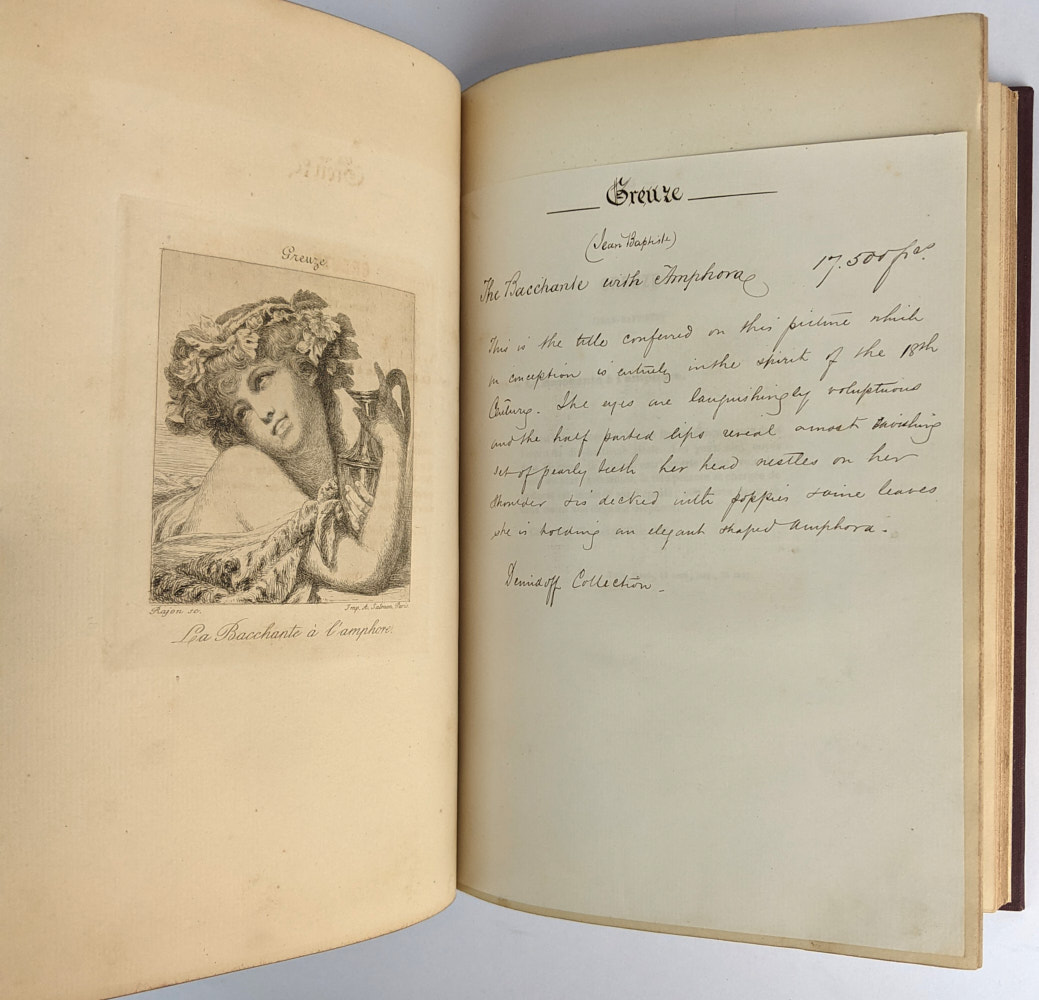 Greuze
Rajon sc.
Imp. A. Salmon, Paris
La Bacchante à l'amphore.
Greuze
(Jean Baptiste)
The Bacchante with Amphora 17.500 frcs
This is the title conferred on this picture which
in conception is entirely in the spirit of the 18th
Century. The eyes are languishingly voluptuous
and the half parted lips reveal a most ravishing
set of pearly teeth her head nestles on her
shoulder & is decked with poppies & vine leaves
she is holding an elegant shaped Amphora.
Demidoff Collection.